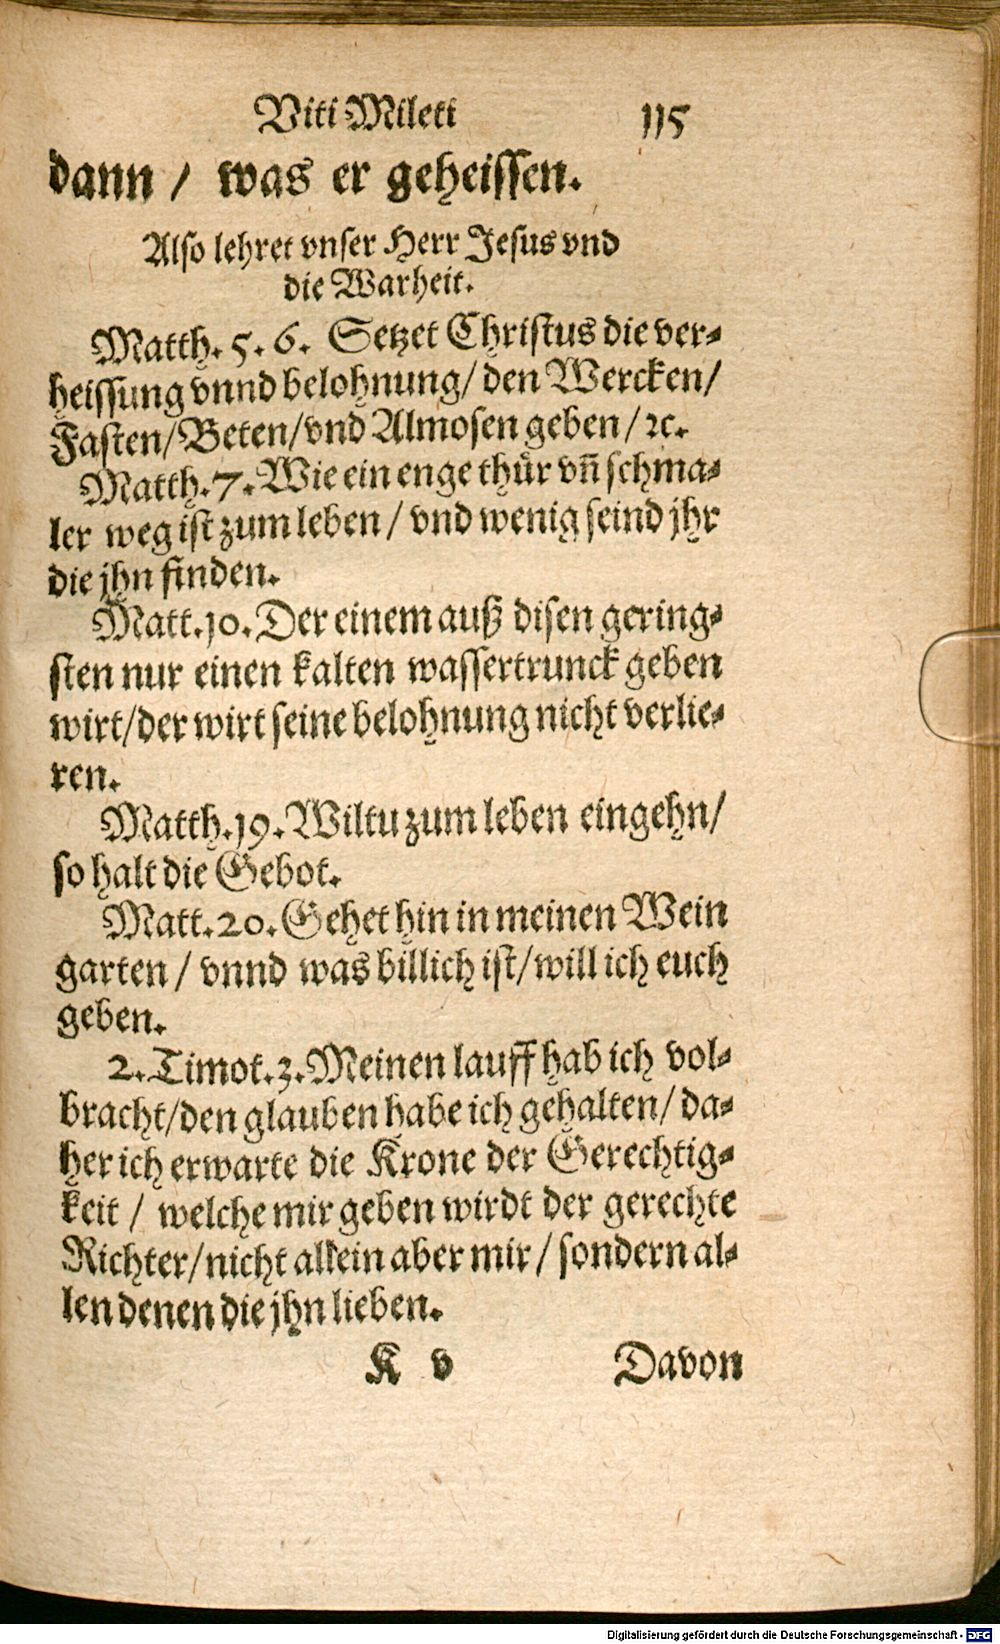 Viti Mileti 115
dann / was er geheissen.
Also lehret vnser Herr Jesus vnd
die Warheit.
Matth. 5. 6. Setzet Christus die ver-
heissung vnnd belohnung/ den Wercken/
Fasten/Beten/vnd Almosen geben/ ꝛc.
Matth. 7. Wie ein enge thür vn̄ schma-
ler weg ist zum leben / vnd wenig seind jhr
die jhn finden.
Matt. 10. Der einem auß disen gering-
sten nur einen kalten wassertrunck geben
wirt/der wirt seine belohnung nicht verlie-
ren.
Matth. 19. Wiltu zum leben eingehn/
so halt die Gebot.
Matt. 20. Gehet hin in meinen Wein
garten / vnnd was billich ist/will ich euch
geben.
2. Timot. 3. Meinen lauff hab ich vol-
bracht/den glauben habe ich gehalten/ da-
her ich erwarte die Krone der Gerechtig-
keit / welche mir geben wirdt der gerechte
Richter/nicht allein aber mir / sondern al-
len denen die jhn lieben.
K v Davon
Digitalisierung gefördert durch die Deutsche Forschungsgemeinschaft - DFG